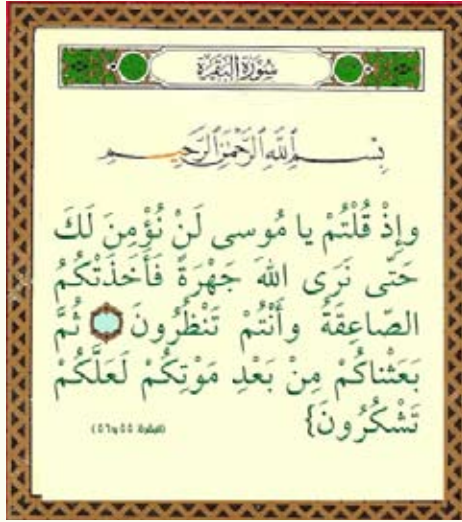 سُورَةُ البَقَرَة
بِسْمِ ٱللَّهِ ٱلرَّحْمَٰنِ ٱلرَّحِيمِ
وإِذْ قُلْتُمْ يا مُوسى لَنْ نُؤْمِنَ لَكَ
حَتّى نَرَى اللهَ جَهْرَةً فَأَخَذَتْكُمُ
الصّاعِقَةُ وأَنْتُمْ تَنْظُرُونَ ثُمَّ
بَعَثْناكُمْ مِنْ بَعْدِ مَوْتِكُمْ لَعَلَّكُمْ
تَشْكُرُونَ} (البقرة ٥٥ و٥٦)